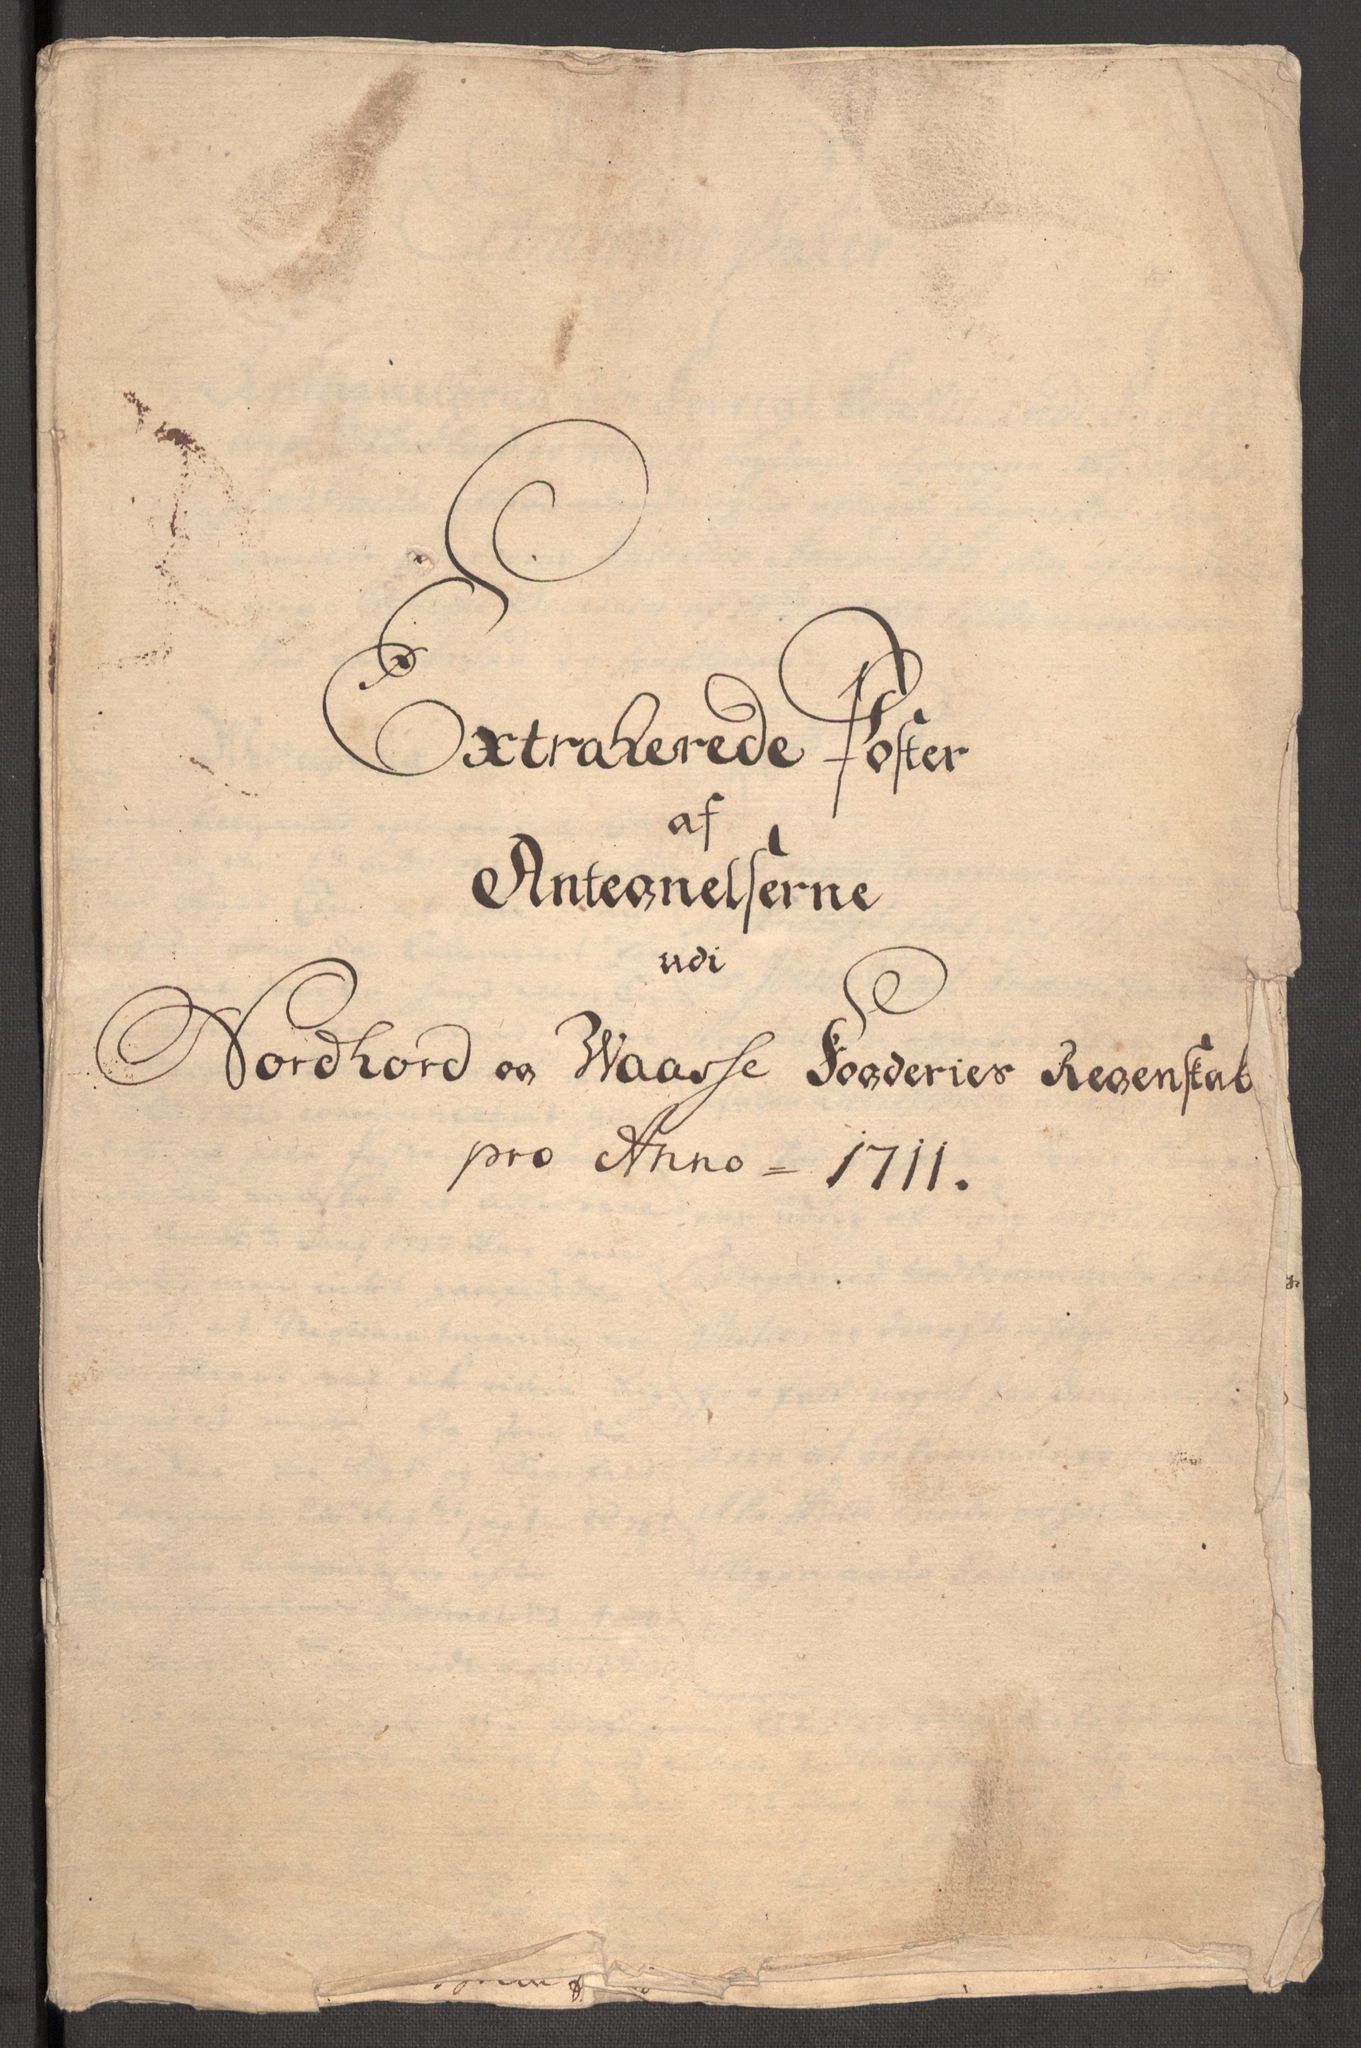 Extraherede Poster
af
Antegnelserne
udi
Nordhord og Waasse Fogderies Regenskab
pro Anno = 1711.